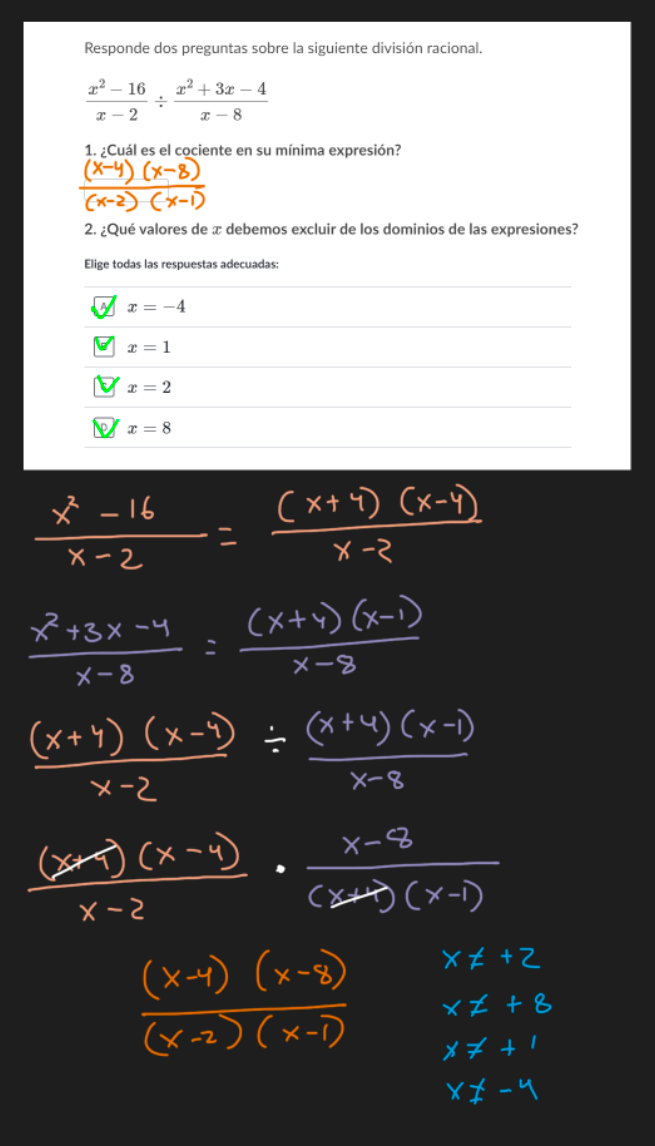 Responde dos preguntas sobre la siguiente división racional.
x² − 16 / x − 2 ÷ x² + 3x − 4 / x − 8
1. ¿Cuál es el cociente en su mínima expresión?
(x−4) (x−8) / (x−2) (x−1)
2. ¿Qué valores de x debemos excluir de los dominios de las expresiones?
Elige todas las respuestas adecuadas:
A x = −4
x = 1
x = 2
D x = 8
x² − 16 / x − 2 = (x+4) (x−4) / x − 2
x² + 3x − 4 / x − 8 = (x+4) (x−1) / x − 8
(x+4) (x−4) / x − 2 ÷ (x+4) (x−1) / x − 8
(x+4) (x−4) / x − 2 · x − 8 / (x+4) (x−1)
(x−4) (x−8) / (x−2) (x−1)
x ≠ +2
x ≠ +8
x ≠ +1
x ≠ −4